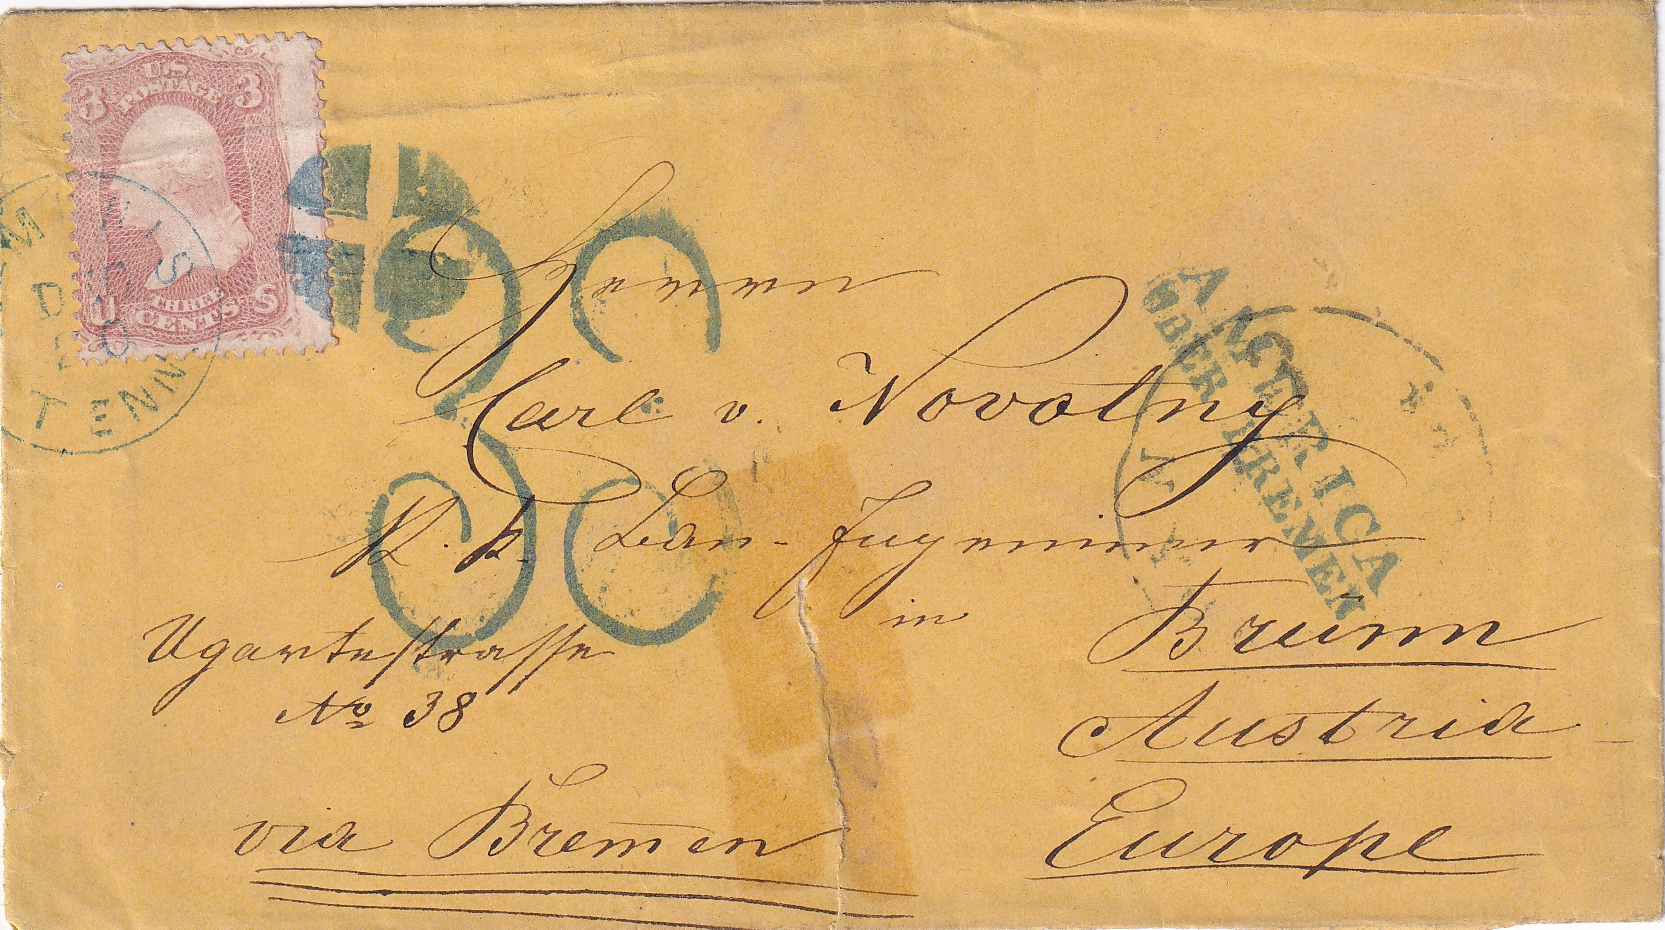 3 U.S. 3
POSTAGE
U THREE S
CENTS
DEC
20
TENN.
38
Herrn
Carl v. Novotny
K. k. Bau-Ingenieur
in
Brünn
Austria
Europe
Ugartestrasse
No 38
via Bremen
AMERICA
ÜBER BREMEN